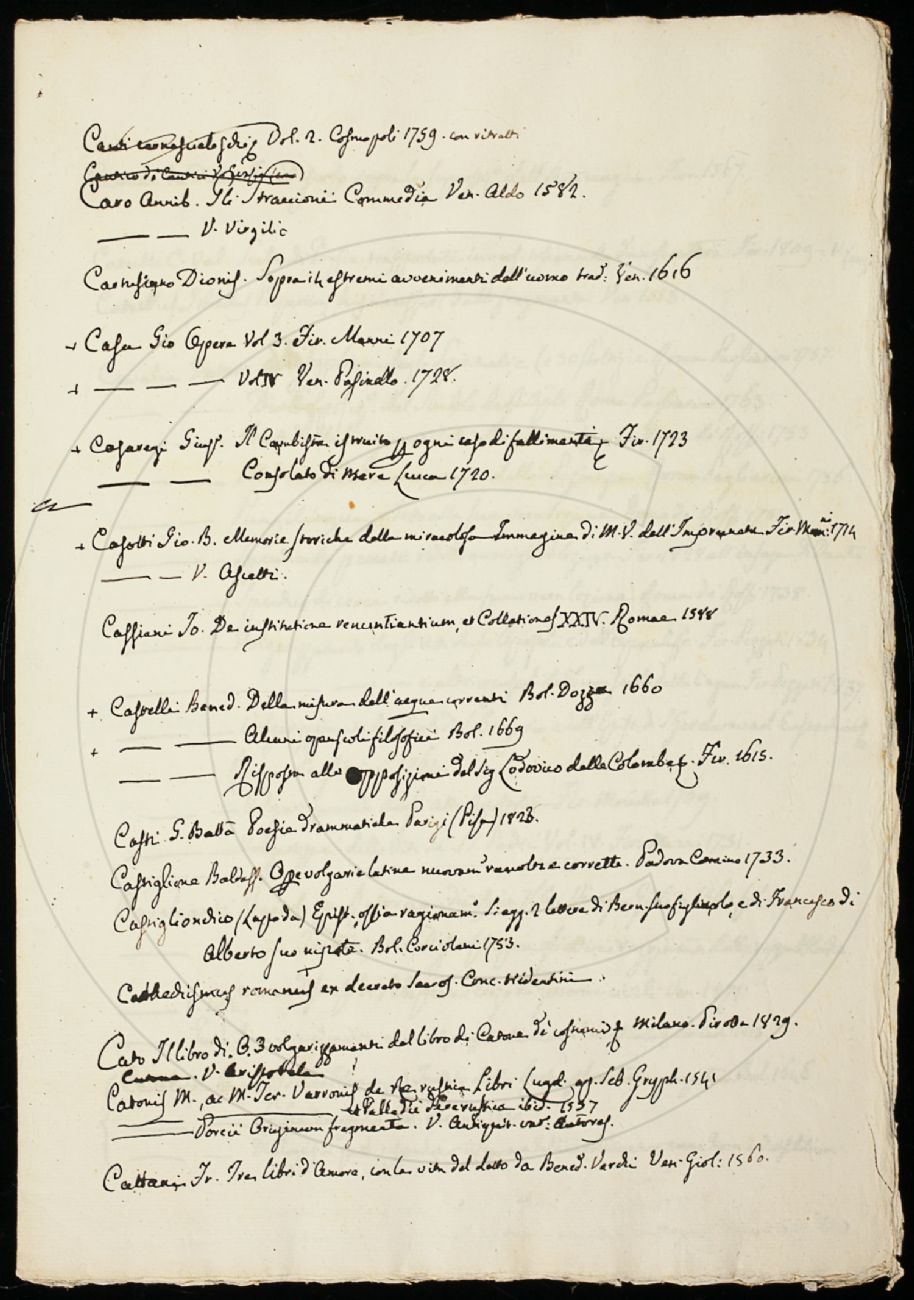 Canti carnascialeschi Vol. 2. Cosmopoli 1759. con ritratti
Caro Annib. Gli Straccioni Commedia Ven. Aldo 1582.
— — V. Virgilio
Cartusiano Dionis. Sopra i 4 estremi avvenimenti dell'uomo trad. Ven. 1616
+ Casa Gio Opere Vol 3. Fir. Manni 1707
+ — — — Vol IV Ven. Pasinello. 1728.
+ Casaregi Gius. Il Cambista istruito ogni caso di fallimenti Fir. 1723
— — Consolato di mare Lucca 1720.
+ Casotti Gio. B. Memorie storiche della miracolosa Immagine di M. V. dell'Impruneta Fir Man: 1714
— — V. Ascolti.
Cassiani Jo. De institutione renuntiantium, et Collationes XXIV. Romae 1588
+ Castelli Bened. Della misura dell'acque correnti Bol. Dozza 1660
+ — — Alcuni opuscoli filosofici Bol. 1669
— — Risposta alle opposizioni del Sig Lodovico delle Colombe Fir. 1615.
Casti G. Batta Poesie drammatiche Parigi (Pisa) 1823.
Castiglione Baldass. Opere volgari e latine nuovam. raccolte e corrette. Padova Comino 1733.
Castiglionchio (Lapo da) Epist. ossia ragionam. Si agg. 2 lettere di Bern. suo figliuolo, e di Francesco di
Alberto suo nipote. Bol. Corciolani 1753.
Cathedismus romanus ex decreto Sacros. Conc. tridentini.
Cato Il libro di C. 3 volgarizzamenti del libro di Catone de' costumi Milano. Pirotta 1829.
V. Aristotele
Catonis M., ac M. Ter. Varronis de Re rustica Libri Lugd. ap. Seb. Gryph. 1541
et Palladii de re rustica ibid. 1537
— Porcii Originum fragmenta. V. Antiquit. var: Autores.
Cattani Fr. Tre libri d'Amore, con la vita del detto da Bened. Varchi Ven. Giol: 1560.